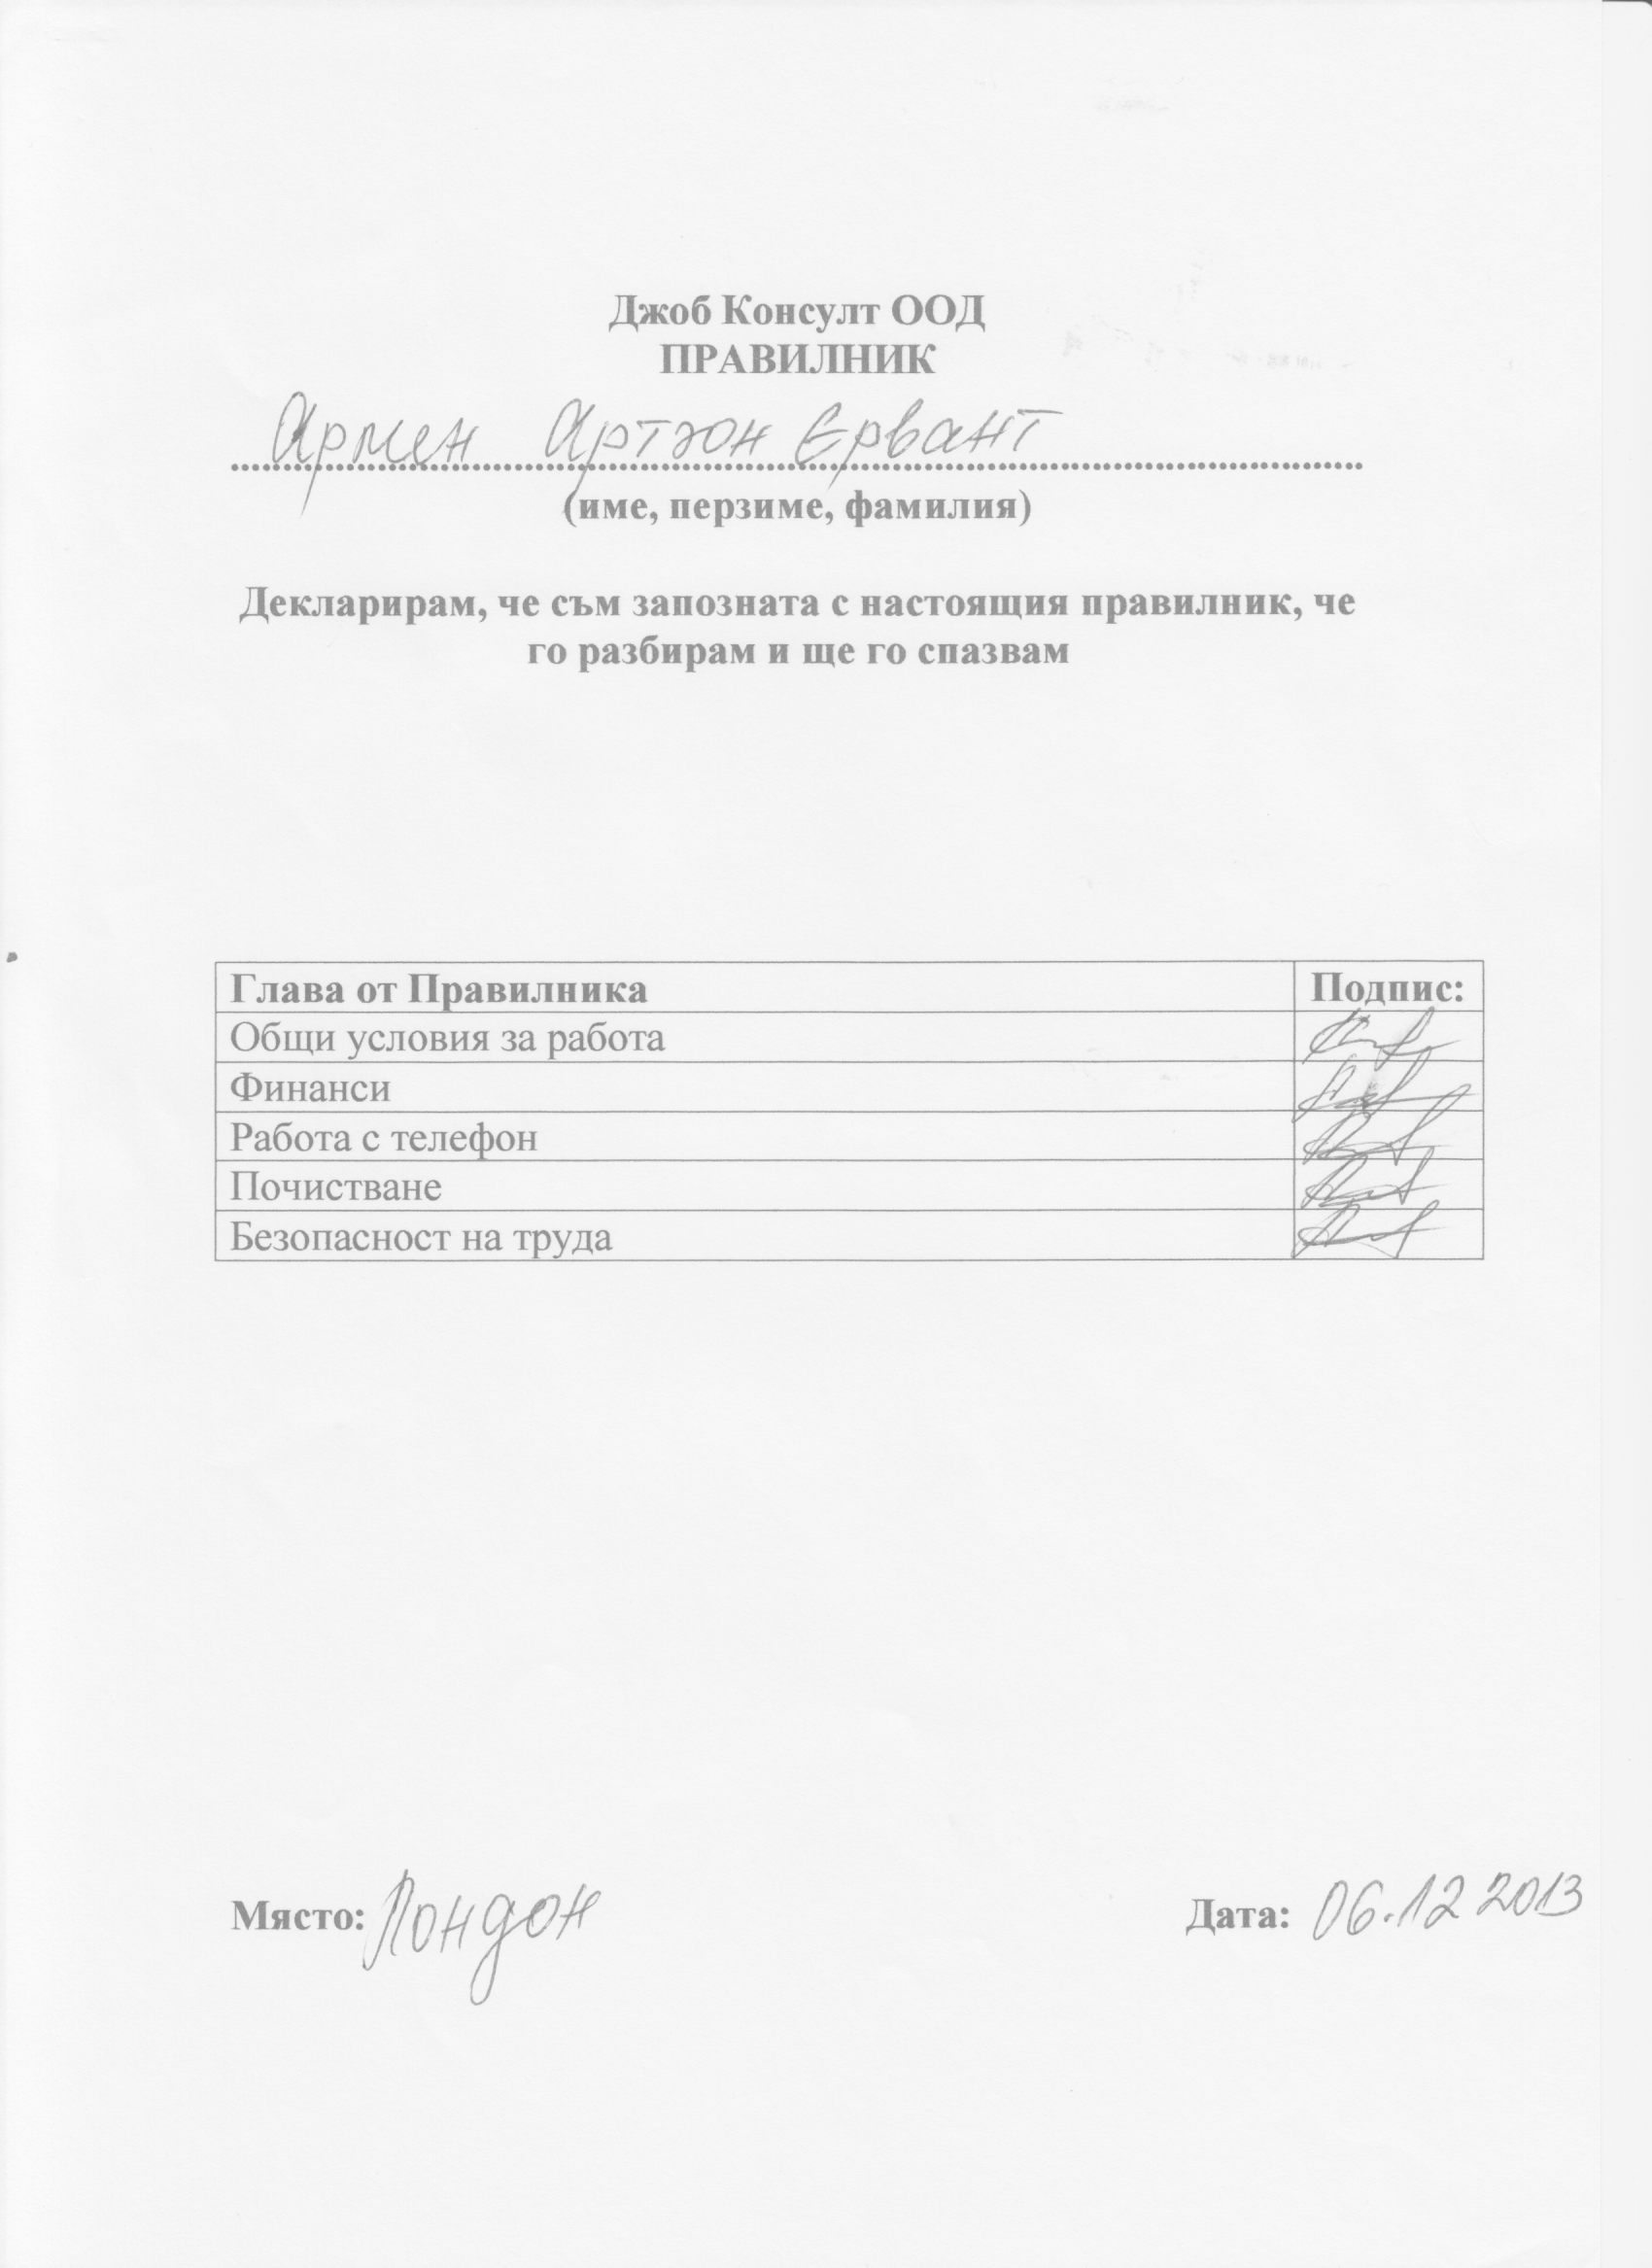 Джоб Консулт ООД
ПРАВИЛНИК
Армен Артюн Ервант
(име, перзиме, фамилия)
Декларирам, че съм запозната с настоящия правилник, че
го разбирам и ще го спазвам
Глава от Правилника Подпис:
Общи условия за работа
Финанси
Работа с телефон
Почистване
Безопасност на труда
Място: Лондон Дата: 06.12 2013